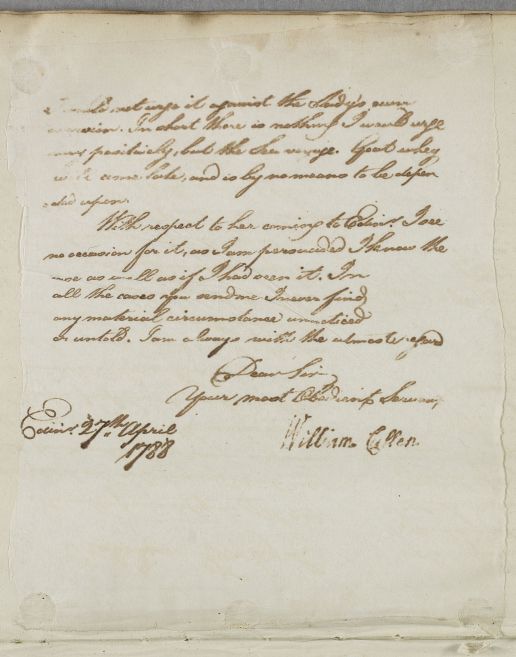 not urge it against the Lady's own
In short there is nothing I would urge
positively, but the Sea voyage. Goat whey
and is by no means to be depen
ded upon.
With respect to her coming to Edinr. I see
no occasion for it, as I am persuaded I know the
case as well as if I had seen it. In
all the cases you send me I never find
any material circumstance unnoticed
or untold. I am always with the utmost regard
Dear Sir
Your most Obedient Servant
Edinr. 27th April
1788
William Cullen